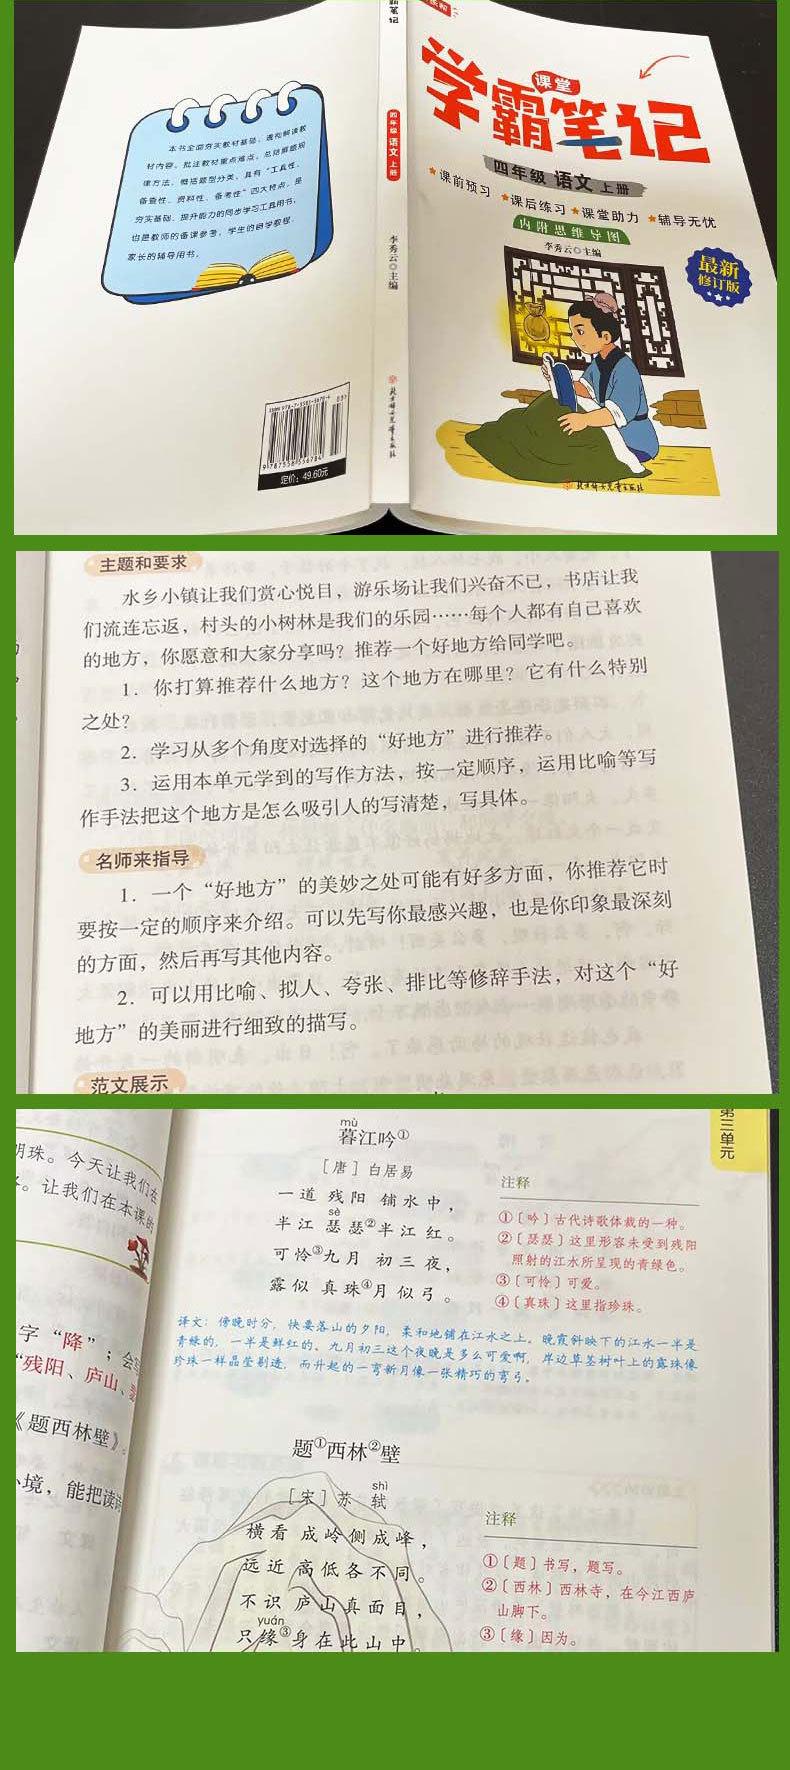 本书全面夯实教材基础，透彻解读教
材内容。批注教材重点难点，总结解题规
律方法，概括题型分类，具有“工具性、
备查性、资料性、备考性”四大特点，是
夯实基础、提升能力的同步学习工具用书，
也是教师的备课参考，学生的自学教程，
家长的辅导用书。
定价：49.60元
笔记
四年级 语文 上册
李秀云◎主编
北京妇女儿童出版社
课堂
学霸笔记
四年级 语文 上册
★课前预习 ★课后练习 ★课堂助力 ★辅导无忧
内附思维导图
李秀云◎主编
最新
修订版
主题和要求
水乡小镇让我们赏心悦目，游乐场让我们兴奋不已，书店让我
们流连忘返，村头的小树林是我们的乐园……每个人都有自己喜欢
的地方，你愿意和大家分享吗？推荐一个好地方给同学吧。
1．你打算推荐什么地方？这个地方在哪里？它有什么特别
之处？
2．学习从多个角度对选择的“好地方”进行推荐。
3．运用本单元学到的写作方法，按一定顺序，运用比喻等写
作手法把这个地方是怎么吸引人的写清楚，写具体。
名师来指导
1．一个“好地方”的美妙之处可能有好多方面，你推荐它时
要按一定的顺序来介绍。可以先写你最感兴趣，也是你印象最深刻
的方面，然后再写其他内容。
2．可以用比喻、拟人、夸张、排比等修辞手法，对这个“好
地方”的美丽进行细致的描写。
范文展示
第三单元
明珠。今天让我们在
让我们在本课的
字“降”；会写
“残阳、庐山、
《题西林壁》。
境，能把读诗
mù
暮江吟①
［唐］白居易
一道 残阳 铺水中，
sè
半江 瑟瑟②半江 红。
可怜③九月 初三夜，
露似 真珠④月似弓。
注释
①〔吟〕古代诗歌体裁的一种。
②〔瑟瑟〕这里形容未受到残阳
照射的江水所呈现的青绿色。
③〔可怜〕可爱。
④〔真珠〕这里指珍珠。
译文：傍晚时分，快要落山的夕阳，柔和地铺在江水之上。晚霞斜映下的江水一半是
青绿的，一半是鲜红的。九月初三这个夜晚是多么可爱啊，岸边草茎树叶上的露珠像
珍珠一样晶莹剔透，而升起的一弯新月像一张精巧的弯弓。
题①西林②壁
shì
［宋］苏 轼
横看 成岭侧成峰，
远近 高低各不同。
不识 庐山真面目，
yuán
只缘③身在此山中。
注释
①〔题〕书写，题写。
②〔西林〕西林寺，在今江西庐
山脚下。
③〔缘〕因为。